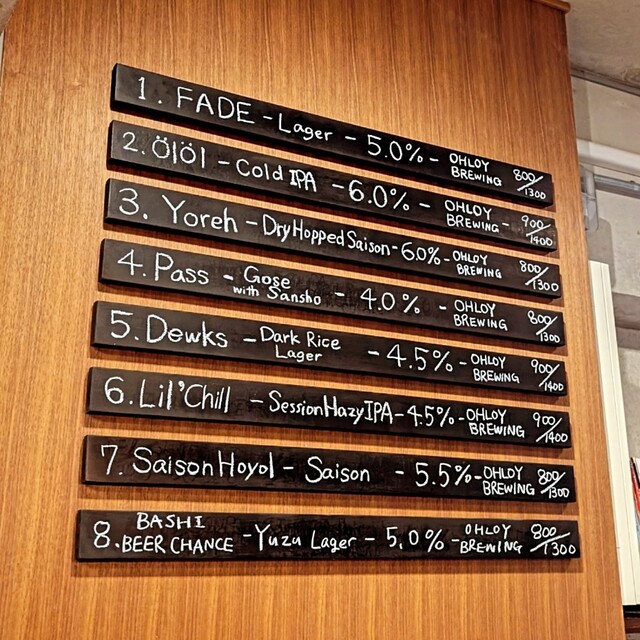 1. FADE - Lager - 5.0% - OHLOY BREWING 800/1300
2. Ölöl - Cold IPA - 6.0% - OHLOY BREWING - 900/1400
3. Yoreh - Dry Hopped Saison - 6.0% - OHLOY BREWING 800/1300
4. Pass - Gose with Sansho - 4.0% - OHLOY BREWING 800/1300
5. Dewks - Dark Rice Lager - 4.5% - OHLOY BREWING 900/1400
6. Lil'Chill - Session Hazy IPA - 4.5% - OHLOY BREWING 900/1400
7. Saison Hoyol - Saison - 5.5% - OHLOY BREWING 800/1300
8. BASHI BEER CHANCE - Yuzu Lager - 5.0% - OHLOY BREWING 800/1300